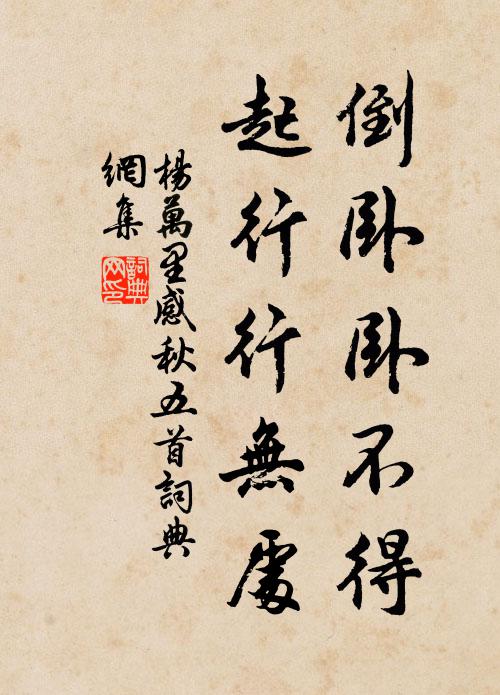 倒卧卧不得
起行行無處
楊萬里感秋五首詞典
網集
詞典
网印